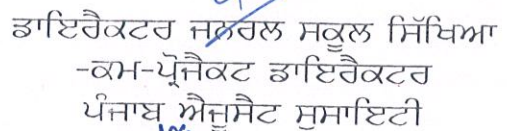 ਡਾਇਰੈਕਟਰ ਜਨਰਲ ਸਕੂਲ ਸਿੱਖਿਆ
-ਕਮ-ਪ੍ਰੋਜੈਕਟ ਡਾਇਰੈਕਟਰ
ਪੰਜਾਬ ਐਜੂਸੈਟ ਸੁਸਾਇਟੀ